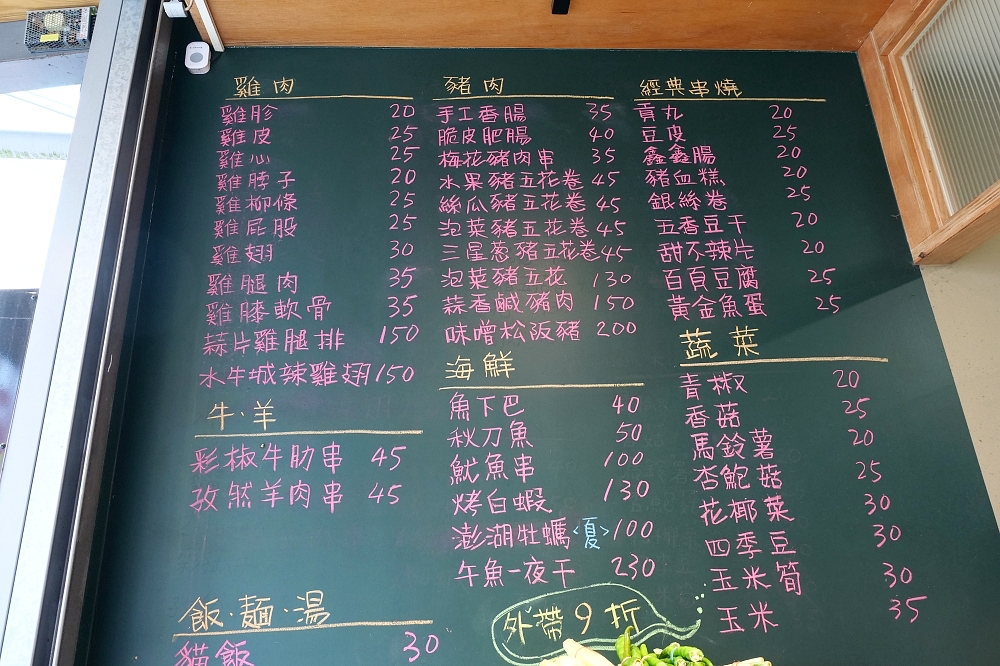 雞肉
雞胗 20
雞皮 25
雞心 25
雞脖子 20
雞柳條 25
雞屁股 25
雞翅 30
雞腿肉 35
雞膝軟骨 35
蒜片雞腿排 150
水牛城辣雞翅 150
牛·羊
彩椒牛肋串 45
孜然羊肉串 45
飯·麵·湯
貓飯 30
豬肉
手工香腸 35
脆皮肥腸 40
梅花豬肉串 35
水果豬五花卷 45
絲瓜豬五花卷 45
泡菜豬五花卷 45
三星蔥豬五花卷 45
泡菜豬五花 130
蒜香鹹豬肉 150
味噌松阪豬 200
海鮮
魚下巴 40
秋刀魚 50
魷魚串 100
烤白蝦 130
澎湖牡蠣<夏> 100
午魚一夜干 230
外帶9折
經典串燒
貢丸 20
豆皮 25
鑫鑫腸 20
豬血糕 20
銀絲卷 25
五香豆干 20
甜不辣片 20
百頁豆腐 25
黃金魚蛋 25
蔬菜
青椒 20
香菇 25
馬鈴薯 20
杏鮑菇 25
花椰菜 30
四季豆 30
玉米筍 30
玉米 35